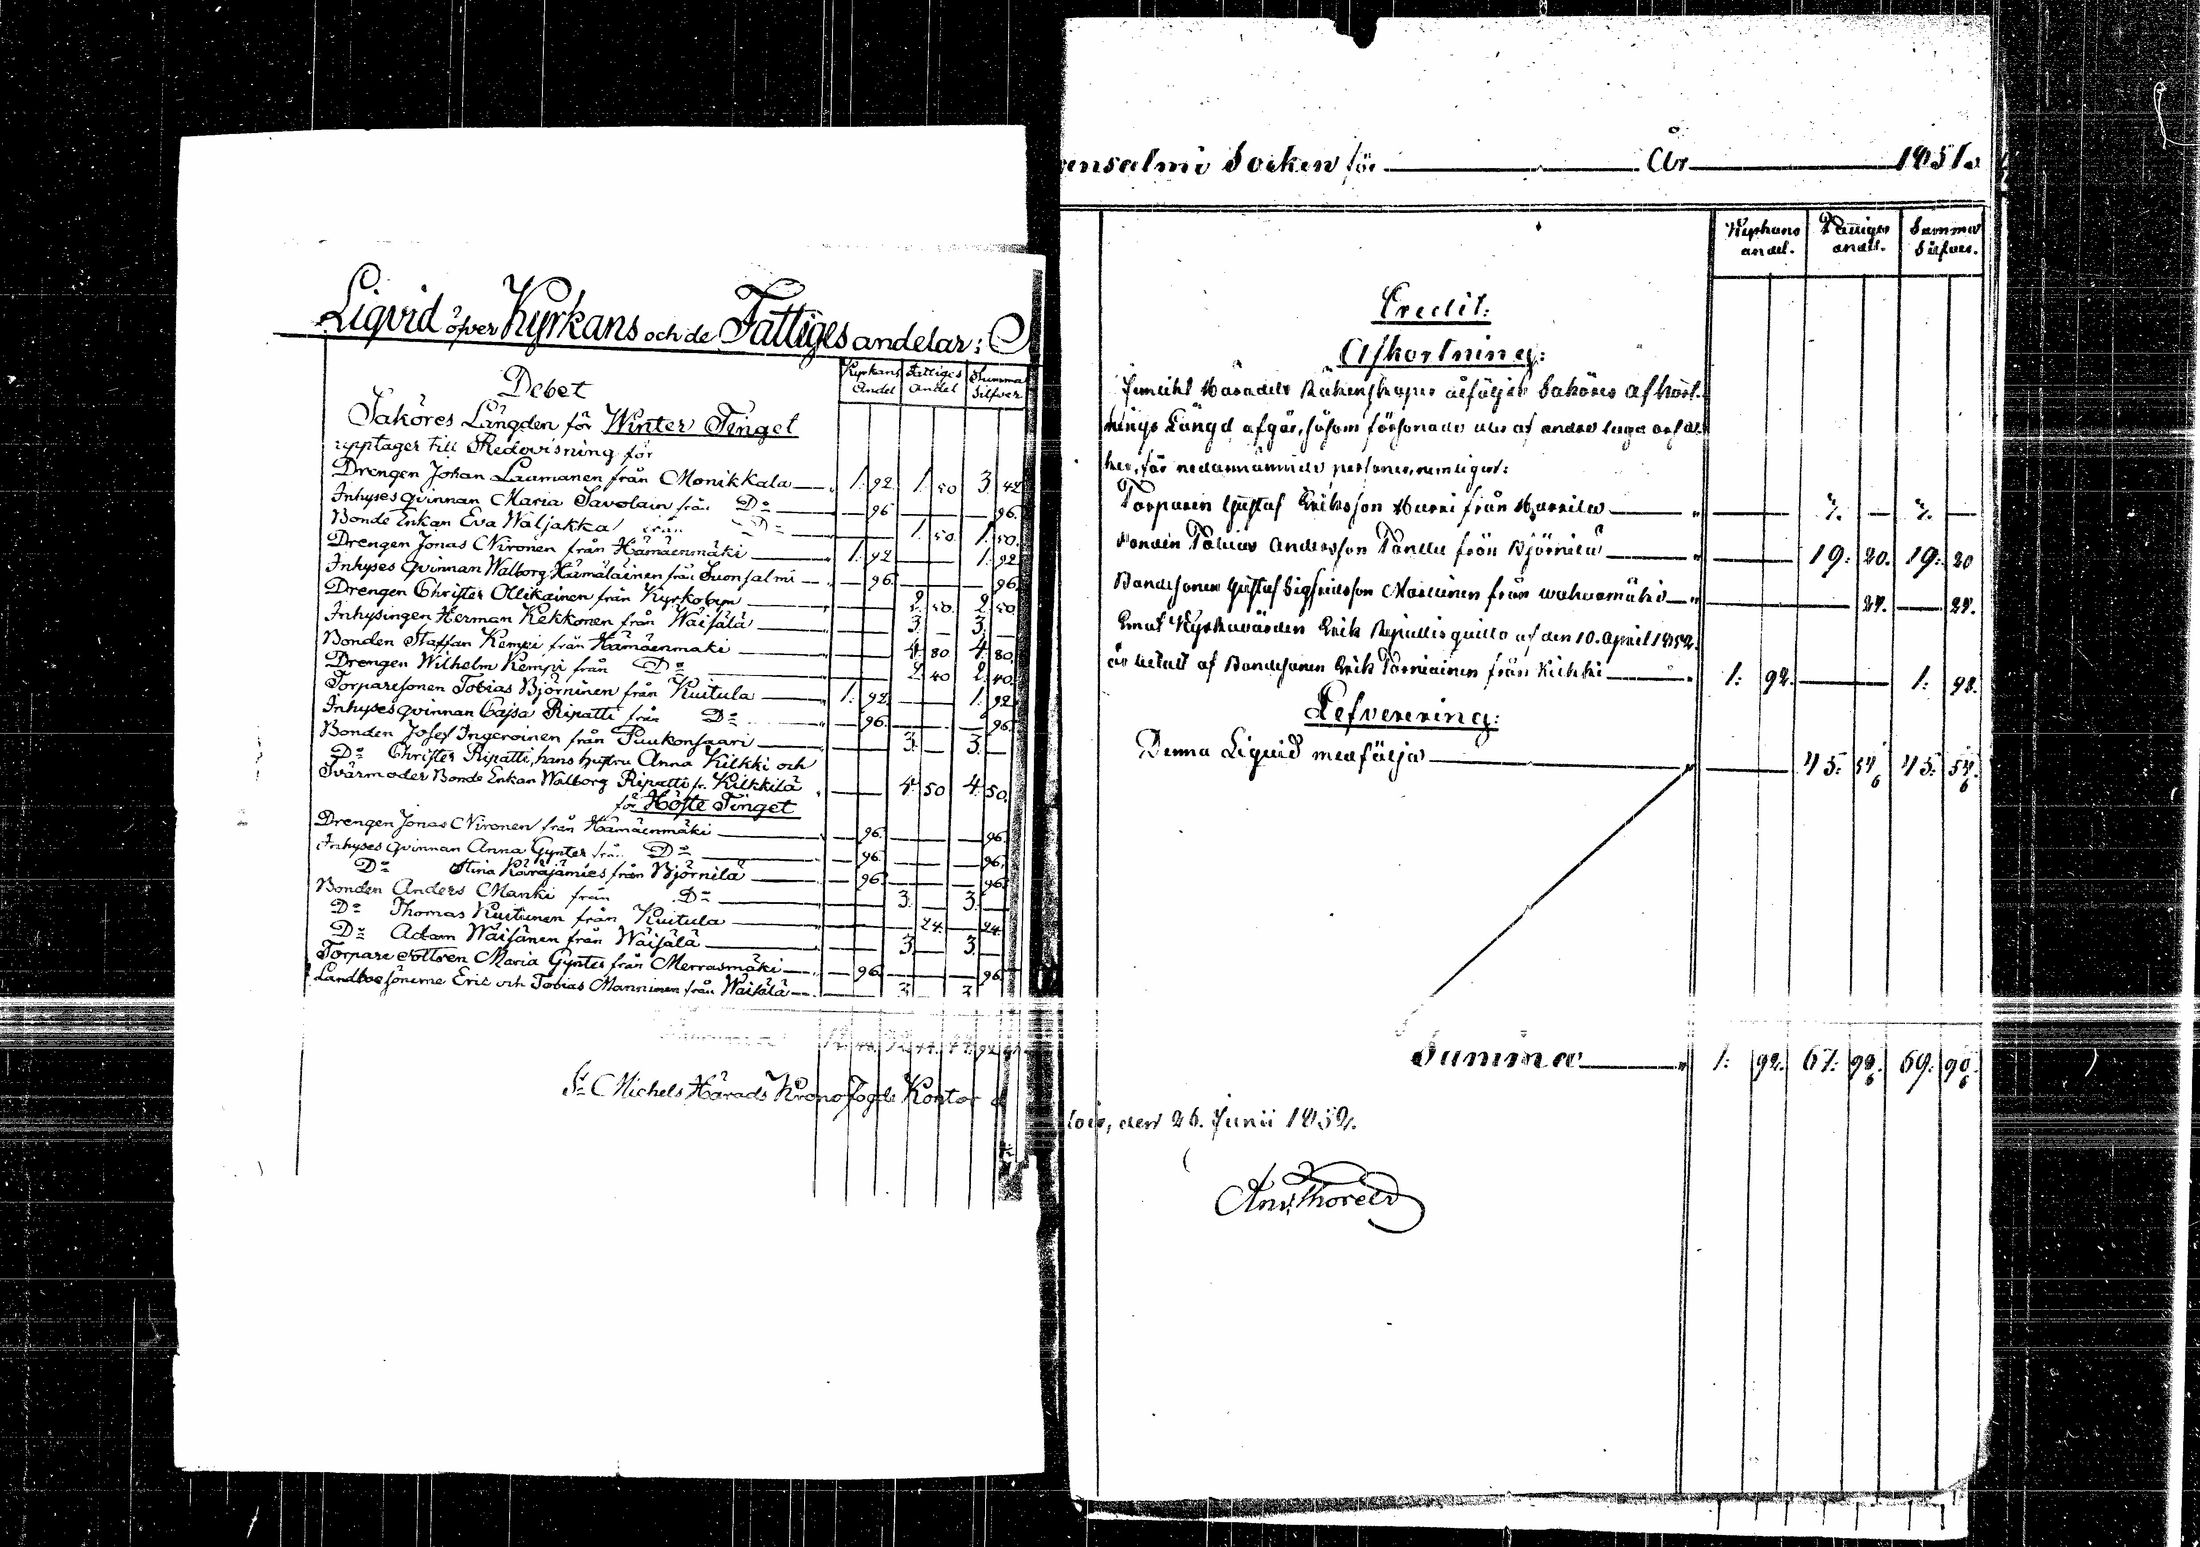 Liqvid öfver Kyrkans och de Fattiges andelar:
Kyrkans Andel Fattiges Andel Summa Silfver
Debet
Saköres Längden för Winter Tinget
upptager till Redovisning för
Drengen Johan Laumanen från Monikkala 1. 92. 1. 50. 3. 42.
Inhyses qvinnan Maria Savolain från Do 96. 96.
Bonde Enkan Eva Waljakka från Do 1. 50. 1. 50.
Drengen Jonas Nironen från Hämäenmäki 1. 92 1. 92
Inhyses qvinnan Walborg Hämäläinen från Suonsalmi 96. 96.
Drengen Christer Ollikainen från Kyrkobyn 2. 50. 2. 50
Inhysingen Herman Kekkonen från Wäisälä 3. 3.
Bonden Staffan Kempi från Hämäenmäki 4. 80. 4. 80.
Drengen Wilhelm Kempi från Do 2. 40 2. 40.
Torparesonen Tobias Björninen från Kuitula 1. 92. 1. 92.
Inhyses qvinnan Cajsa Ripatti från Do 96. 96.
Bonden Josef Ingeroinen från Puukonsaari 3. 3.
Do Christer Ripatti, hans hustru Anna Kilkki och
Svärmoder Bonde Enkan Walborg Ripatti fr. Kilkkilä 4. 50 4. 50.
för Höste Tinget
Drengen Jonas Nironen från Hämäenmäki 96. 96.
Inhyses qvinnan Anna Gynter från Do 96. 96.
Do Stina Käräjämies från Björnilä 96. 96.
Bonden Anders Manki från Do 3. 3.
Do Thomas Kuitunen från Kuitula 24. 24.
Do Adam Wäisänen från Wäisälä 3. 3.
Torpare dottren Maria Gynter från Merrasmäki 96. 96.
Landboesönerne Eric och Tobias Manninen från Wäisälä 3. 3.
St Michels Härads Kronofogde Kontor
ensalmi Socken för År 1851.
Kyrkans andel. Fattiges andel. Summa Silfver.
Credit:
Afkortning:
Saköres Afkort-
nings Längd afgår, såsom försonade
för nedannämnde personer, nemligen:
Torparen Gustaf Eriksson Harri från Harrila
Bonden Tobias Andersson Pandu från Björnilä 19. 20. 19. 20
Bondesonen Gustaf Sigfridsson från 24. 24.
Emot Kyrkovärden Erik Ripattis quitto af den 10. April 1852.
är betalt af Bondesonen Erik från Kilkki 1. 92. 1. 92.
Lefverering:
Denna Liquid medfölja 45. 54. 6 45. 54. 6
Summa 1. 92. 67. 98. 6 69. 90. 6
den 26. Junii 1852.
And. Thoreld